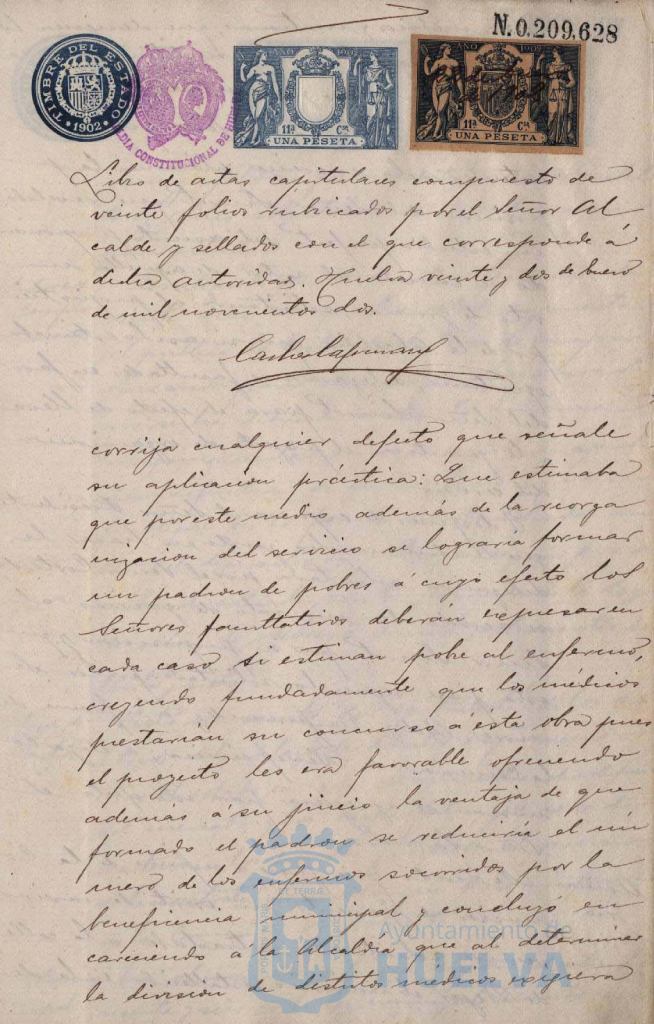 N.0.209,628
TIMBRE DEL ESTADO
1902
CONSTITUCIONAL DE
AÑO 1902
11ª Cˢᵉ
UNA PESETA
AÑO 1902
11ª Cˢᵉ
UNA PESETA
Libro de actas capitulares compuesto de
veinte folios rubricados por el Señor Al
calde y sellados con el que corresponde á
dicha autoridad. Huelva veinte y dos de Enero
de mil novecientos dos.
corrija cualquier defecto que señale
su aplicacion práctica: Que estimaba
que por este medio además de la reorga
nizacion del servicio se lograria formar
un padron de pobres á cuyo efecto los
Señores facultativos deberán expresar en
cada caso si estiman pobre al enfermo,
creyendo fundadamente que los médicos
prestarián su concurso á ésta obra pues
el proyecto les era favorable ofreciendo
además á su juicio la ventaja de que
formado el padron se reduciría el nú
mero de los enfermos socorridos por la
beneficencia municipal y concluyó en
careciendo á la Alcaldia que al determinar
la division de distritos médicos exigiera
Ayuntamiento de
HUELVA